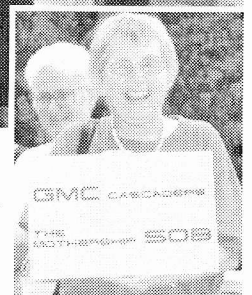 GMC CASCADERS
THE
MOTHERSHIP SOB